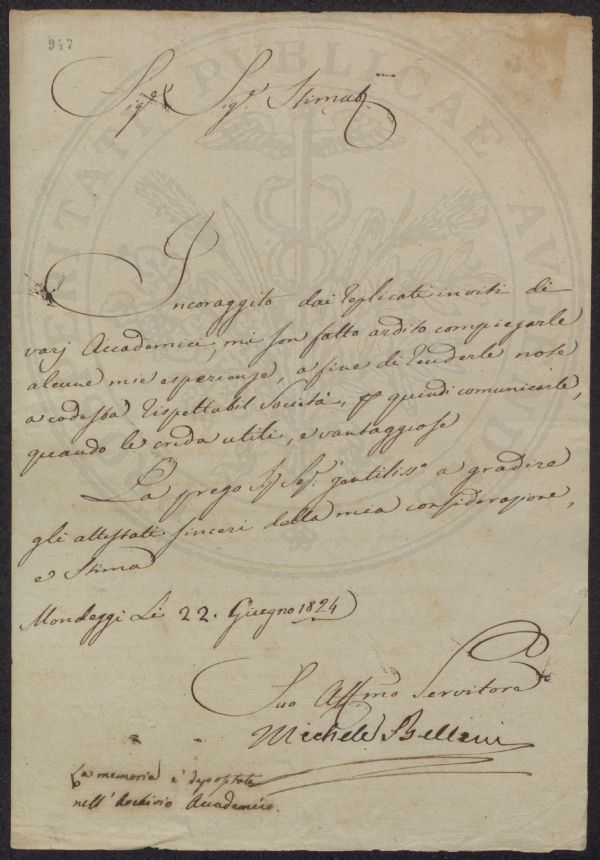 947
Sig.re Sig.r Stimat.mo
Incoraggito dai replicati inviti di
varj Accademici, mi son fatto ardito compiegarle
alcune mie esperienze, a fine di renderle note
a codesta rispettabil Società, e quindi comunicarle,
quando le creda utili, e vantaggiose
La prego Sig. gentiliss.o a gradire
gli attestati sinceri della mia considerazione,
e Stima
Mondeggi Li 22. Giugno 1824
Suo Affmo Servitore
Michele Bellini
La memoria è depositata
nell'Archivio Accademico.
PROSPERITATI PUBLICAE AUGENDAE